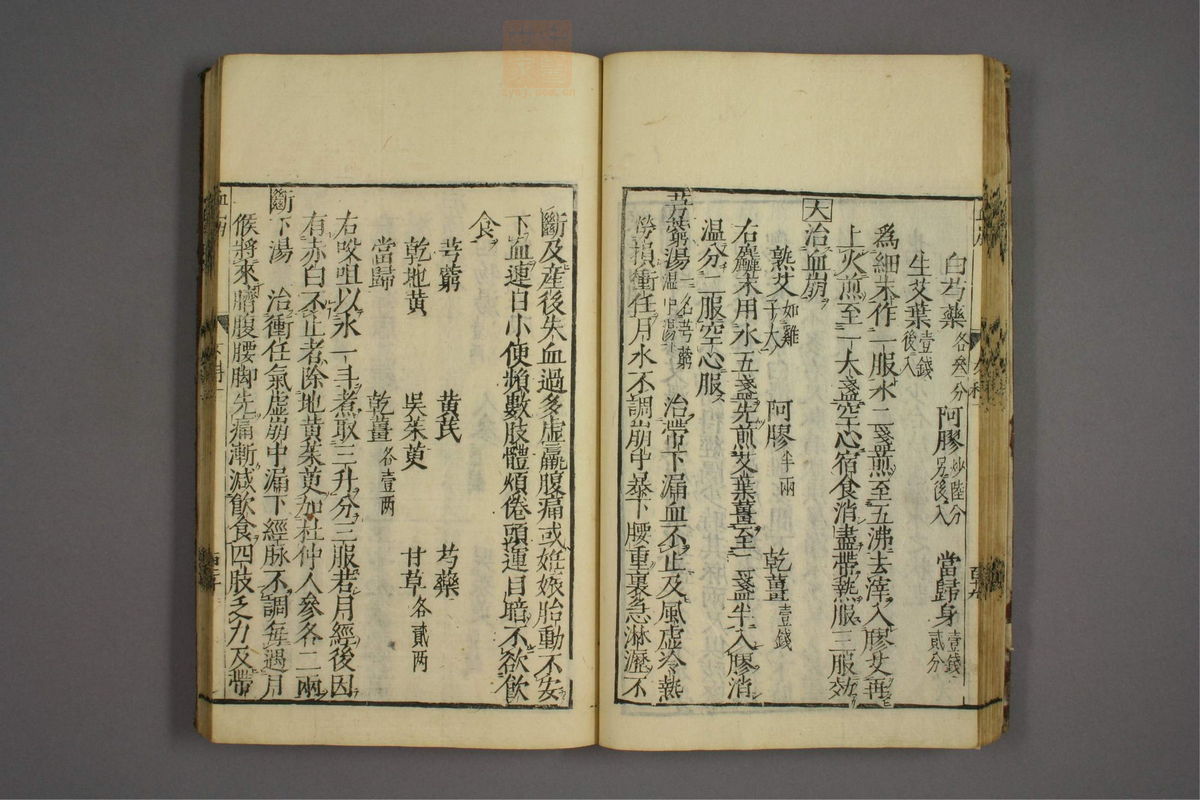 白芍藥各叄分 阿膠炒陸分另後入 當歸身壹錢貳分
生艾葉壹錢後入
為細末作一服水二盞煎至五沸去滓入膠艾再
上火煎至一大盞空心宿食消盡帶熱服三服効
大 治血崩
熟艾如雞子大 阿膠半兩 乾薑壹錢
右麤末用水五盞先煎艾葉薑至二盞半入膠消
温分二服空心服
芎藭湯一名芎藭温中湯 治帶下漏血不止及風虛冷熱
勞損衝任月水不調崩中暴下腰重裏急淋瀝不
斷及產後失血過多虛羸腹痛或妊娠胎動不安
下血連日小便頻數肢體煩倦頭運目暗不欲飲
食
芎藭 黄芪 芍藥
乾地黄 吳茱萸 甘草各貳两
當歸 乾薑各壹两
右㕮咀以水一斗煮取三升分三服若月經後因
有赤白不止者除地黄茱萸加杜仲人參各二兩
斷下湯 治衝任氣虛崩中漏下經脉不調每遇月
候將來臍腹腰脚先痛漸減飲食四肢乏力及帶